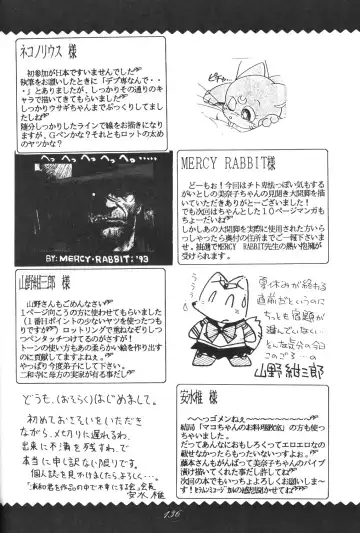 ネコノリウス 様
初参加がH本ですいませんでした
執筆をお願いしたときに「デブ専なんで・・
・」とありましたが、しっかりその通りのキ
ャラで描いてきてもらいました
しっかりウサギちゃんまでぶっくりしてまし
たしね
随分しっかりしたラインで線をお描きになり
ますが、Gペンかな？それともロットの太め
のヤツかな？
ピギャ…
へっ へっへっへっ
BY:MERCY・RABBIT:'93
MERCY RABBIT様
どーもお！今回はチト卑怯っぽい気もする
がいとしの美奈子ちゃんの見開き大開脚を描
いていただきありがとーございました！
でも次回はちゃんとした10ページマンガも
ちょーだいね！
しかしあの大開脚を実際に使用された方いら
っしゃったら奥付の住所までご一報下さいま
せ。抽選でMERCY RABBIT先生の熱い抱擁が
受けられます。
山野紺三郎 様
山野さんもごめんなさい
1ページ向こうの方に使わせてもらいました
（1番H ポイントの少ないヤツを使ったつも
りですが） ロットリングで重ねなぞりしつ
つペンタッチつけてくるのがさすが！
トーンの使い方もあの柔らかい絵を作り出す
のに貢献してますよね
やっぱり今度弟子にして下さい
二和寺に母方の実家が有る事だし
夏休みが終わる
直前だというのに
ちっとも宿題が
進んでいない…
そんな気分の今日
このごろ…の
山野紺三郎
どうも、(おそらく)はじめまして。
初めておさそいをいただき
ながら、〆切りに遅れるわ、
出来に不満を残すわで、
本当に申し訳ない限りです。
個人誌を見かけましたらよろしく…。
安水稚
安水稚 様
～～っゴメンねぇー
結局「マコちゃんのお料理教室」の方も使っ
ちゃいました。
だってあんなにおもしろくってエロエロなの
載せなかったらもったいないっすよぉ。
藤本さんもがんばって美奈子ちゃんのパイプ
漬け描いてくれた事で許してね
次回の本でもいっちょよろしくお願いします